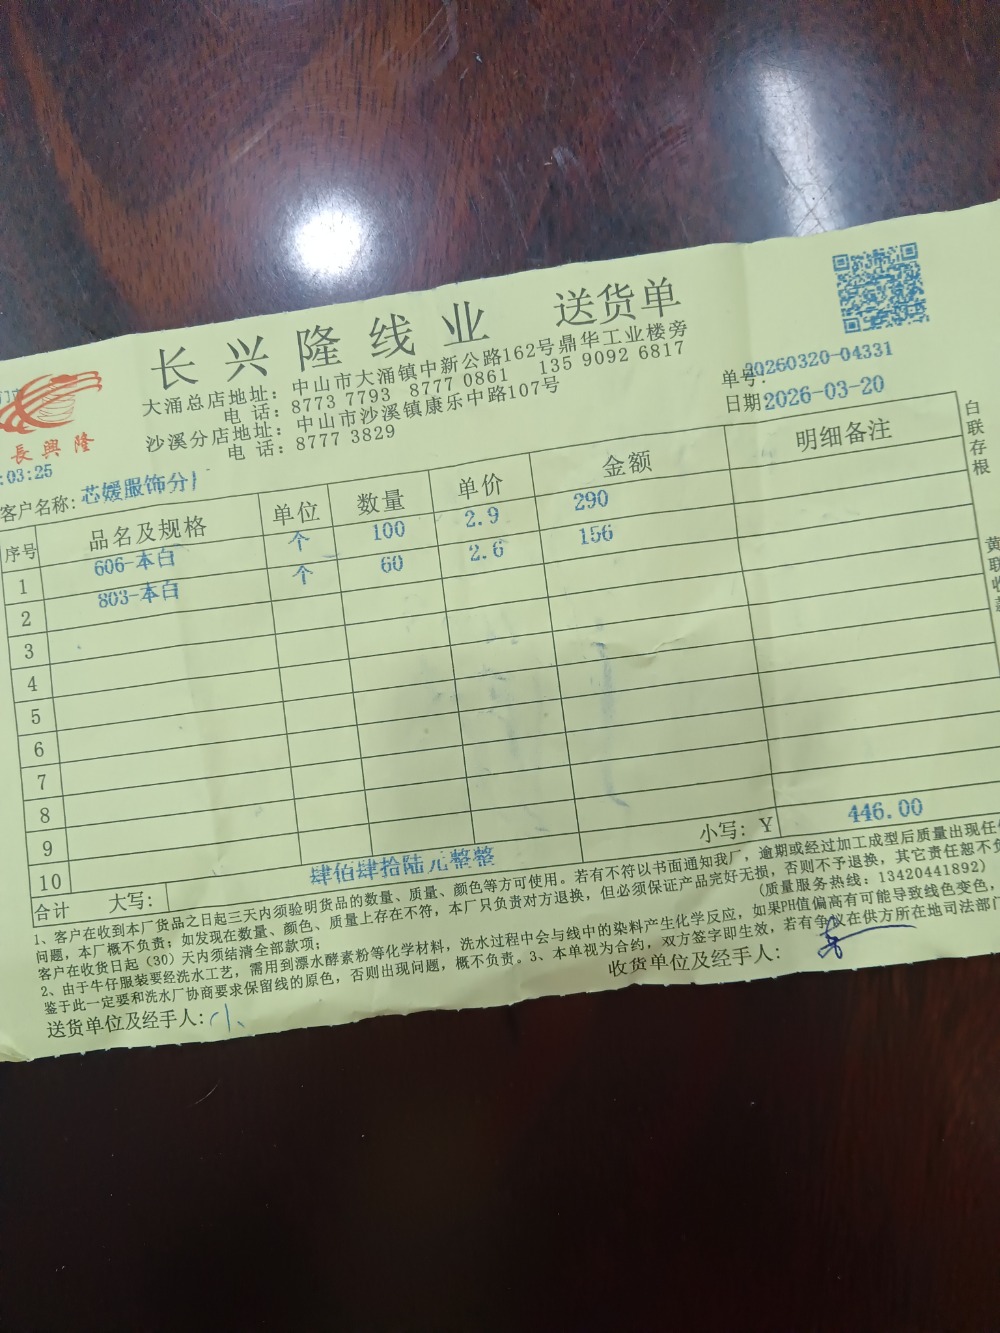 长兴隆线业 送货单
大涌总店地址：中山市大涌镇中新公路162号鼎华工业楼旁
电 话：8773 7793 8777 0861 135 9092 6817
沙溪分店地址：中山市沙溪镇康乐中路107号
电 话：8777 3829
長興隆
单号：20260320-04331
日期2026-03-20
:03:25
客户名称：芯媛服饰分
序号 品名及规格 单位 数量 单价 金额 明细备注
1 606-本白 个 100 2.9 290
2 803-本白 个 60 2.6 156
3
4
5
6
7
8
9
10
合计 大写：肆佰肆拾陆元整整 小写：Y 446.00
1、客户在收到本厂货品之日起三天内须验明货品的数量、质量、颜色等方可使用。若有不符以书面通知我厂，逾期或经过加工成型后质量出现任
问题，本厂概不负责；如发现在数量、颜色、质量上存在不符，本厂只负责对方退换，但必须保证产品完好无损，否则不予退换，其它责任恕不
客户在收货日起（30）天内须结清全部款项； （质量服务热线：13420441892）
2、由于牛仔服装要经洗水工艺，需用到漂水酵素粉等化学材料，洗水过程中会与线中的染料产生化学反应，如果PH值偏高有可能导致线色变色，
鉴于此一定要和洗水厂协商要求保留线的原色，否则出现问题，概不负责。3、本单视为合约，双方签字即生效，若有争议在供方所在地司法部门
送货单位及经手人： 收货单位及经手人：
白联存根
黄联收